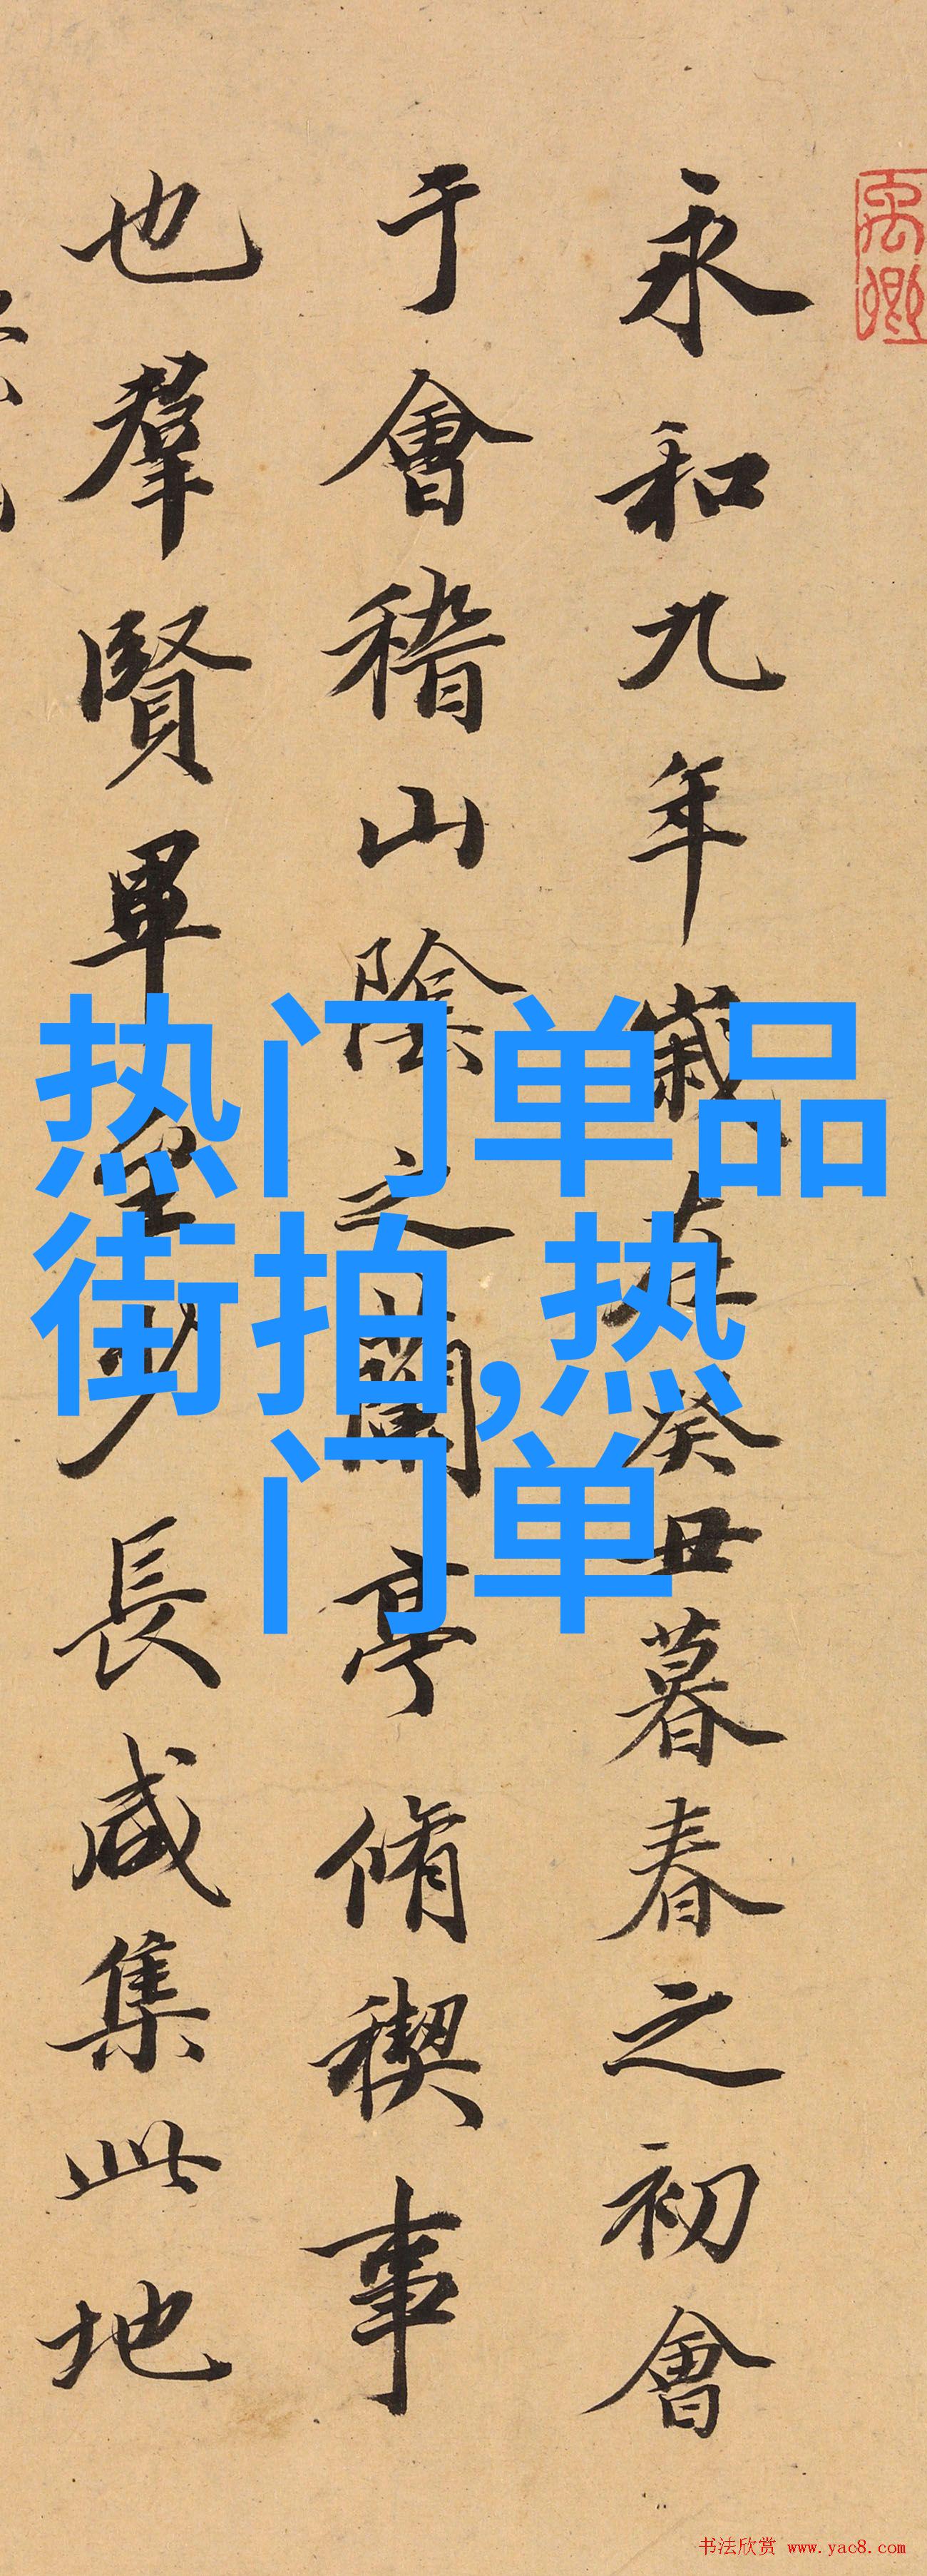 永和九年歲在癸丑暮春之初會
于會稽山陰之蘭亭脩稧事
也羣賢畢至少長咸集此地
禹卿
热门单品
街拍,热
门单
书法欣赏 www.yac8.com